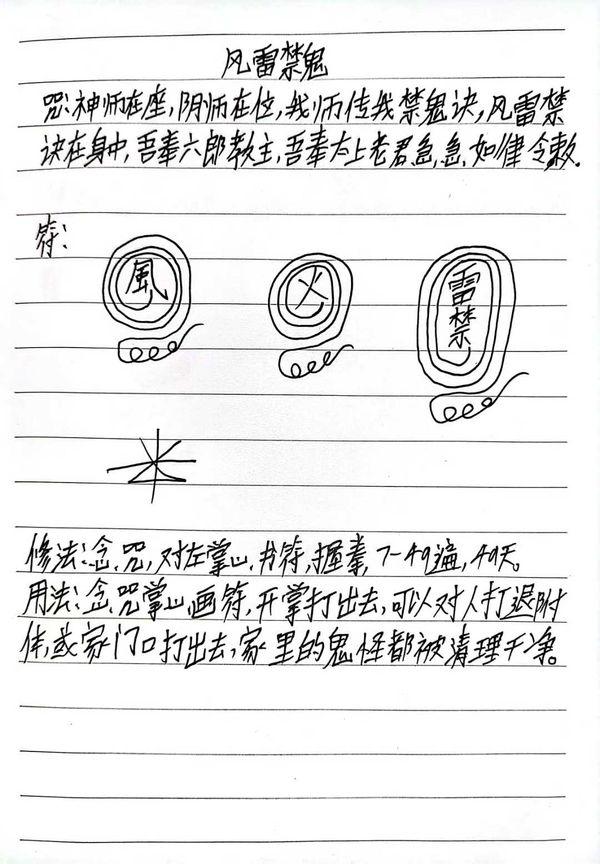 风雷禁鬼
咒:神师在座,阴师在位,我师传我禁鬼诀,风雷禁
诀在身中,吾奉六郎教主,吾奉太上老君急,急,如律令敕。
符:
風 火 雷禁
修法:念咒,对左掌心书符,握拳,7-49遍,49天。
用法:念咒掌心画符,开掌打出去,可以对人打退附
体,或家门口打出去,家里的鬼怪都被清理干净。